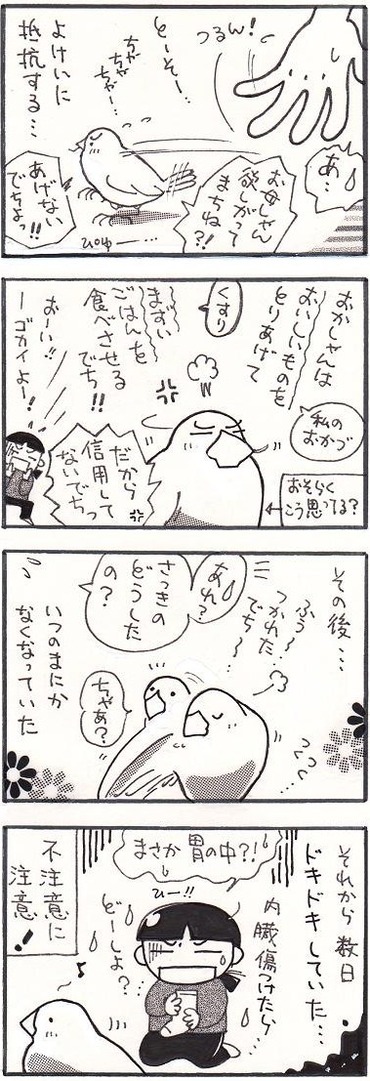 つるん!
あ…
とーそー…
ちゃちゃちゃー…
よけいに
抵抗する…
お母しゃん
欲しがって
まちね?!
あげない
でちよっ!!
ぴゆー…
おかしゃんは
おいしいものを
とりあげて
私の
おかづ
くすり
まずい
ごはんを
食べさせる
でち!!
おーい!!
ーゴカイよー!
だから
信用して
ないでちっ
おそらく
こう思ってる?
その後…
ふぅ〜
つかれた
でち〜
あれ?
さっきの
どうした
の?
ちゃあ?
つくつく…
いつのまにか
なくなっていた
それから数日
ドキドキしていた…
まさか胃の中?!
ひー!!
内臓傷つけたら…
どーしよ?
不注意に
注意!